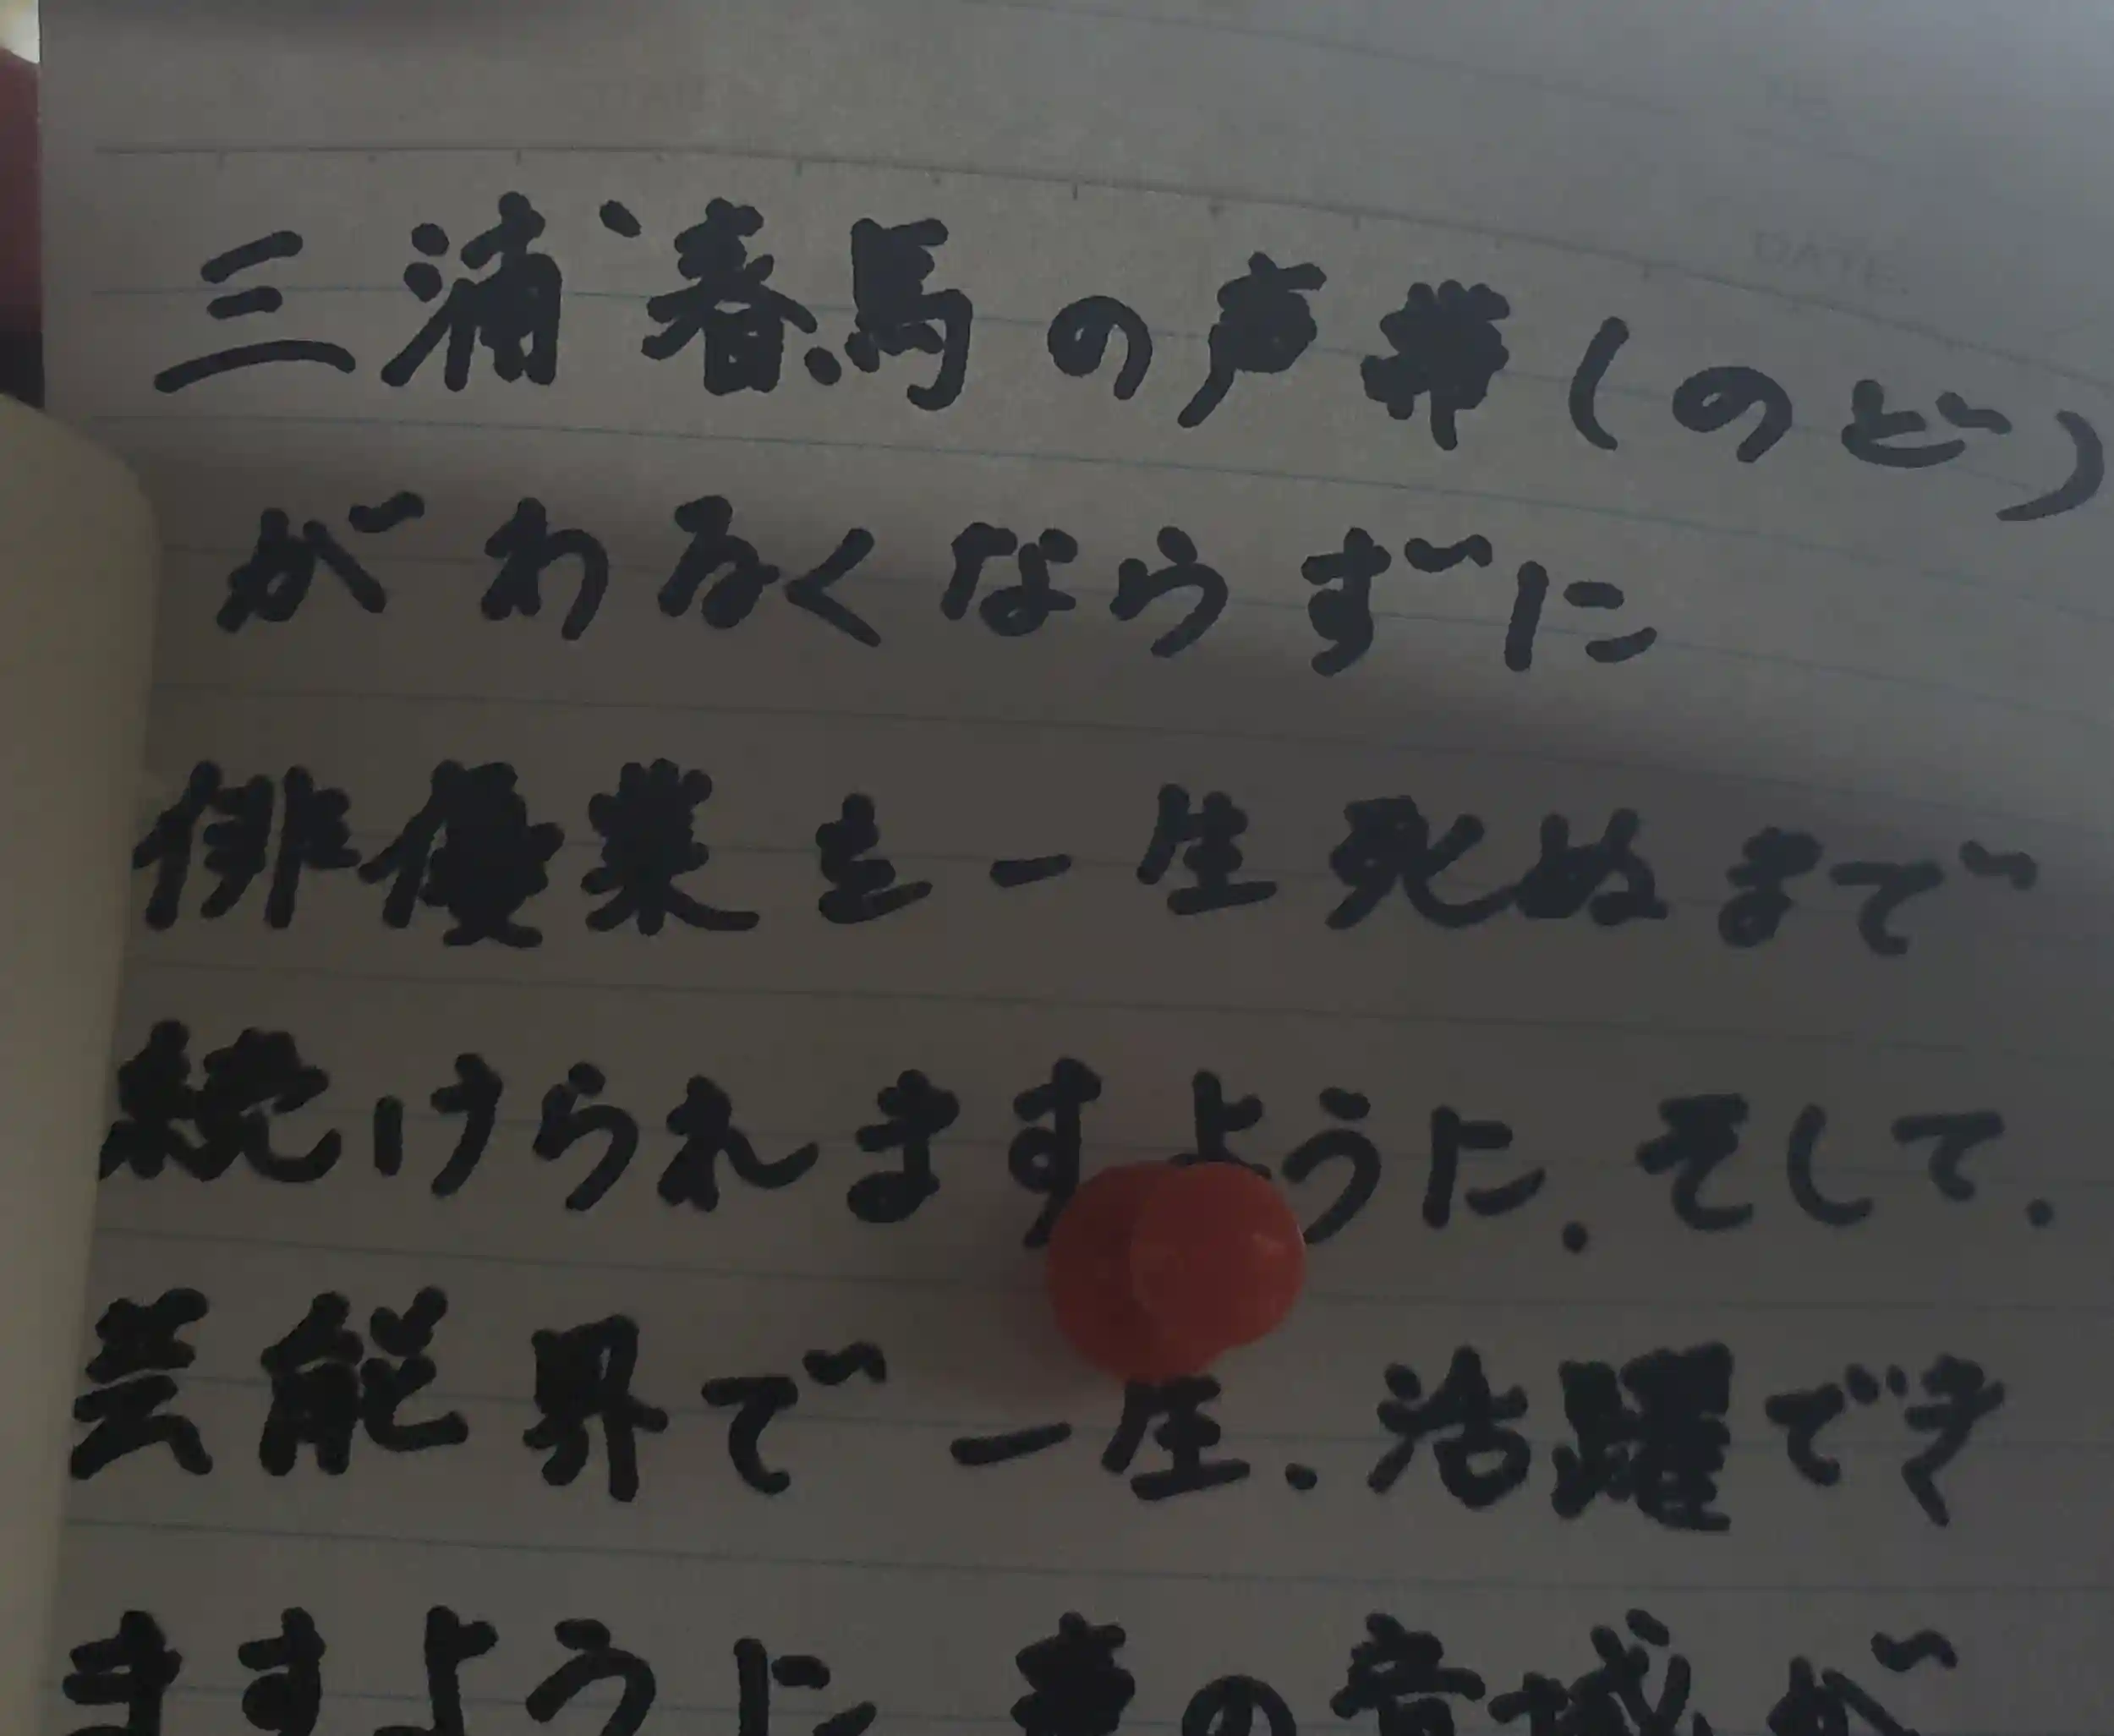 三浦春馬の声帯(のど)
がわるくならずに
俳優業を一生死ぬまで
続けられますように.そして.
芸能界で一生.活躍でき
ますように 声の音域が
DATE